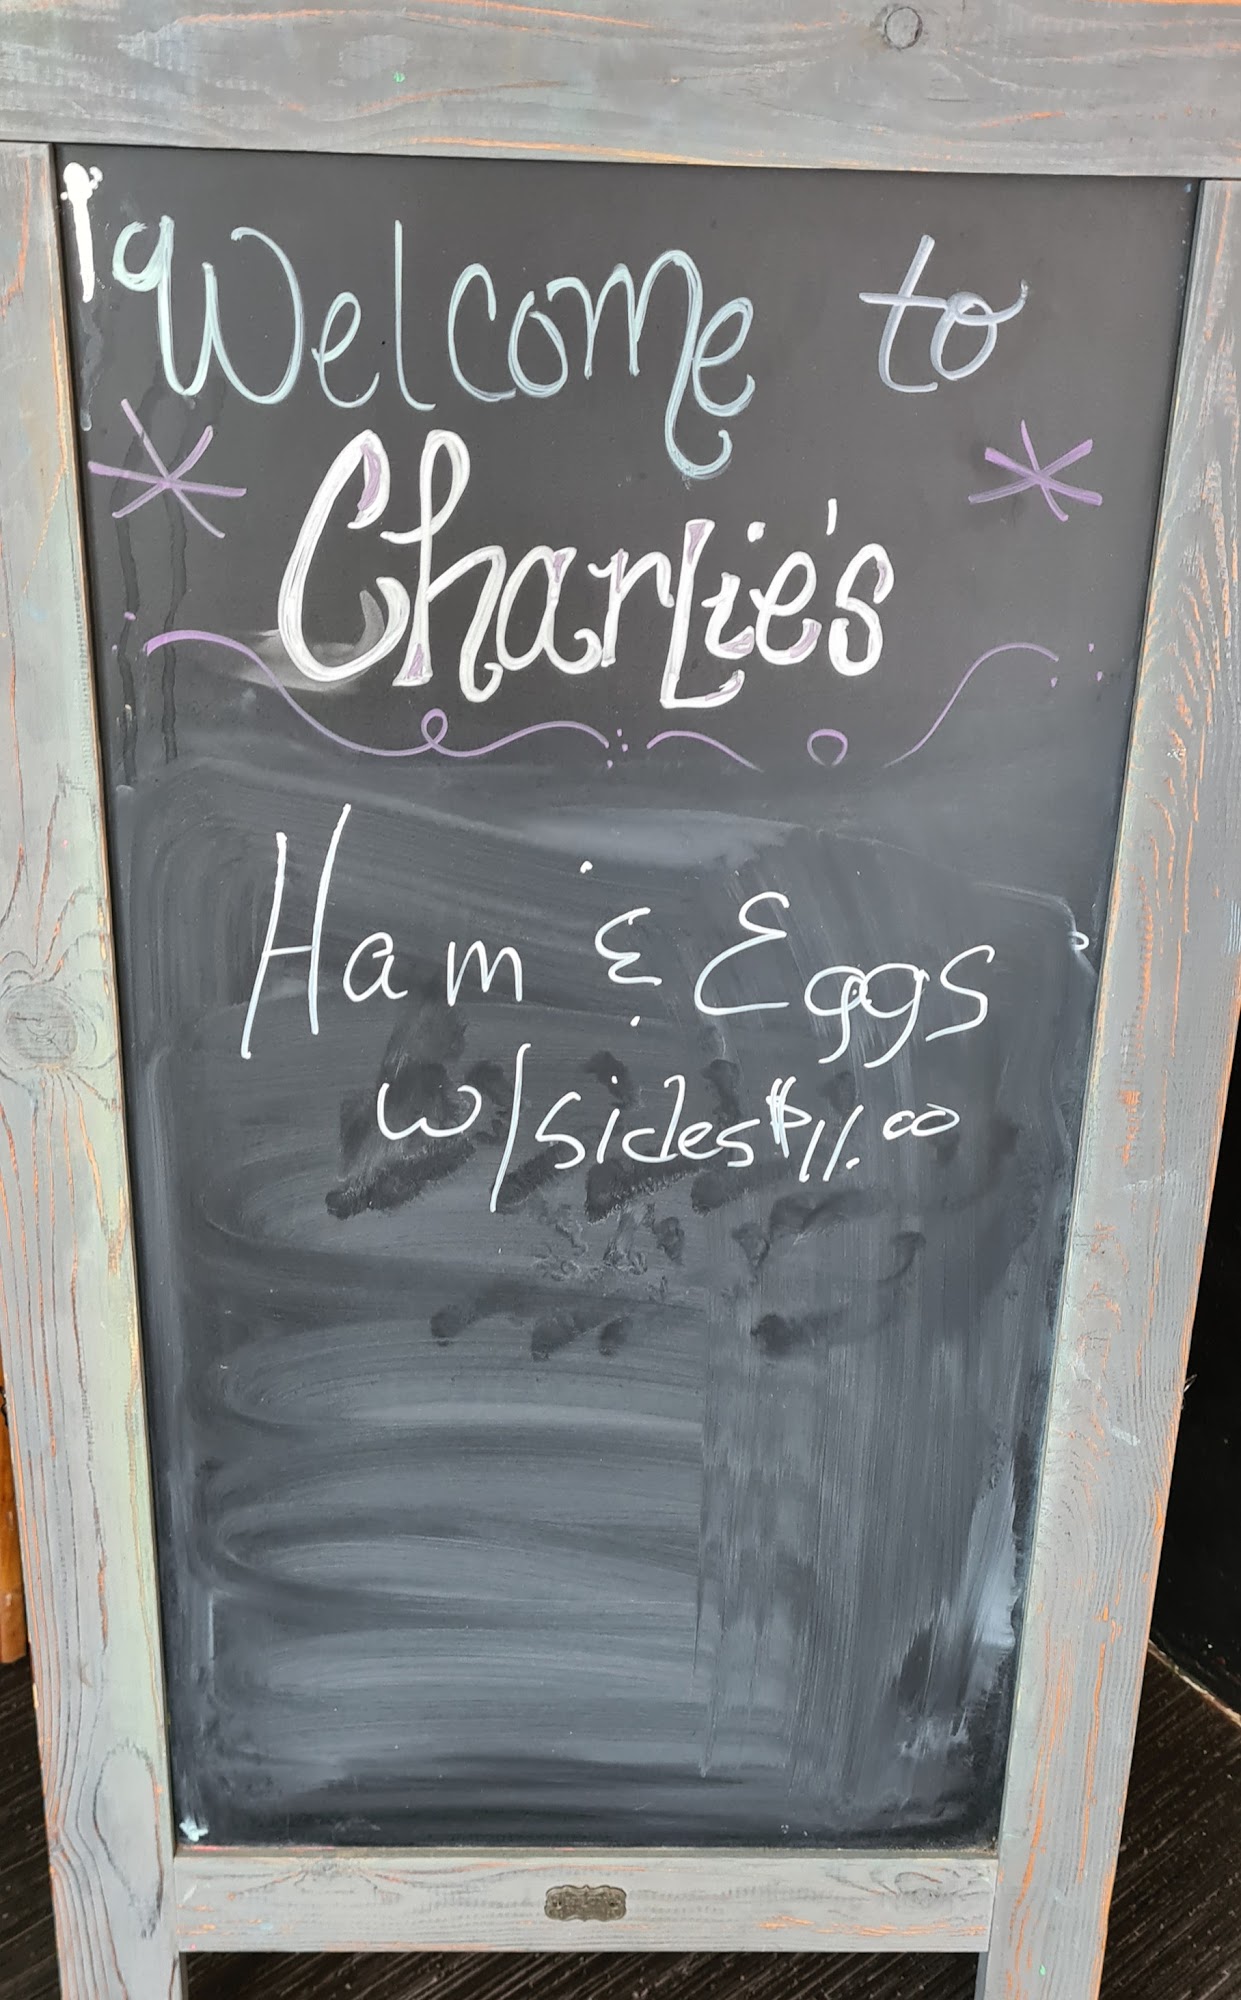 Welcome to
Charlie's
Ham & Eggs
w/sides $11.00